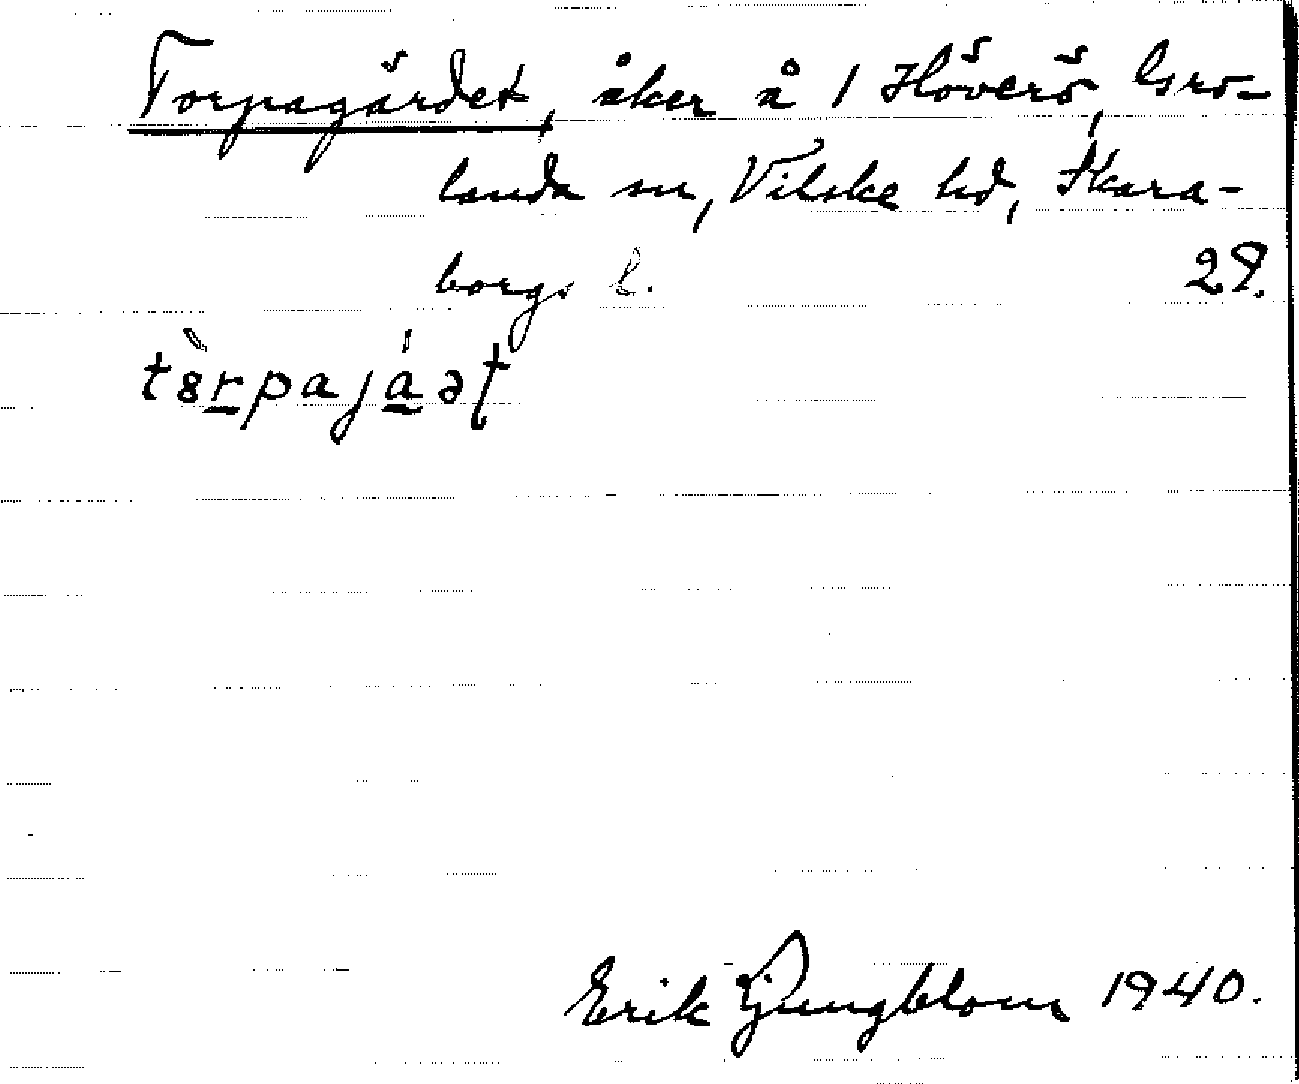 Torpagärdet, åker å 1 Höverö, Gro-
landa sn, Vilske hd, Skara-
borgs l. 29.
tȣ̀rpajáət
Erik Ljungblom 1940.